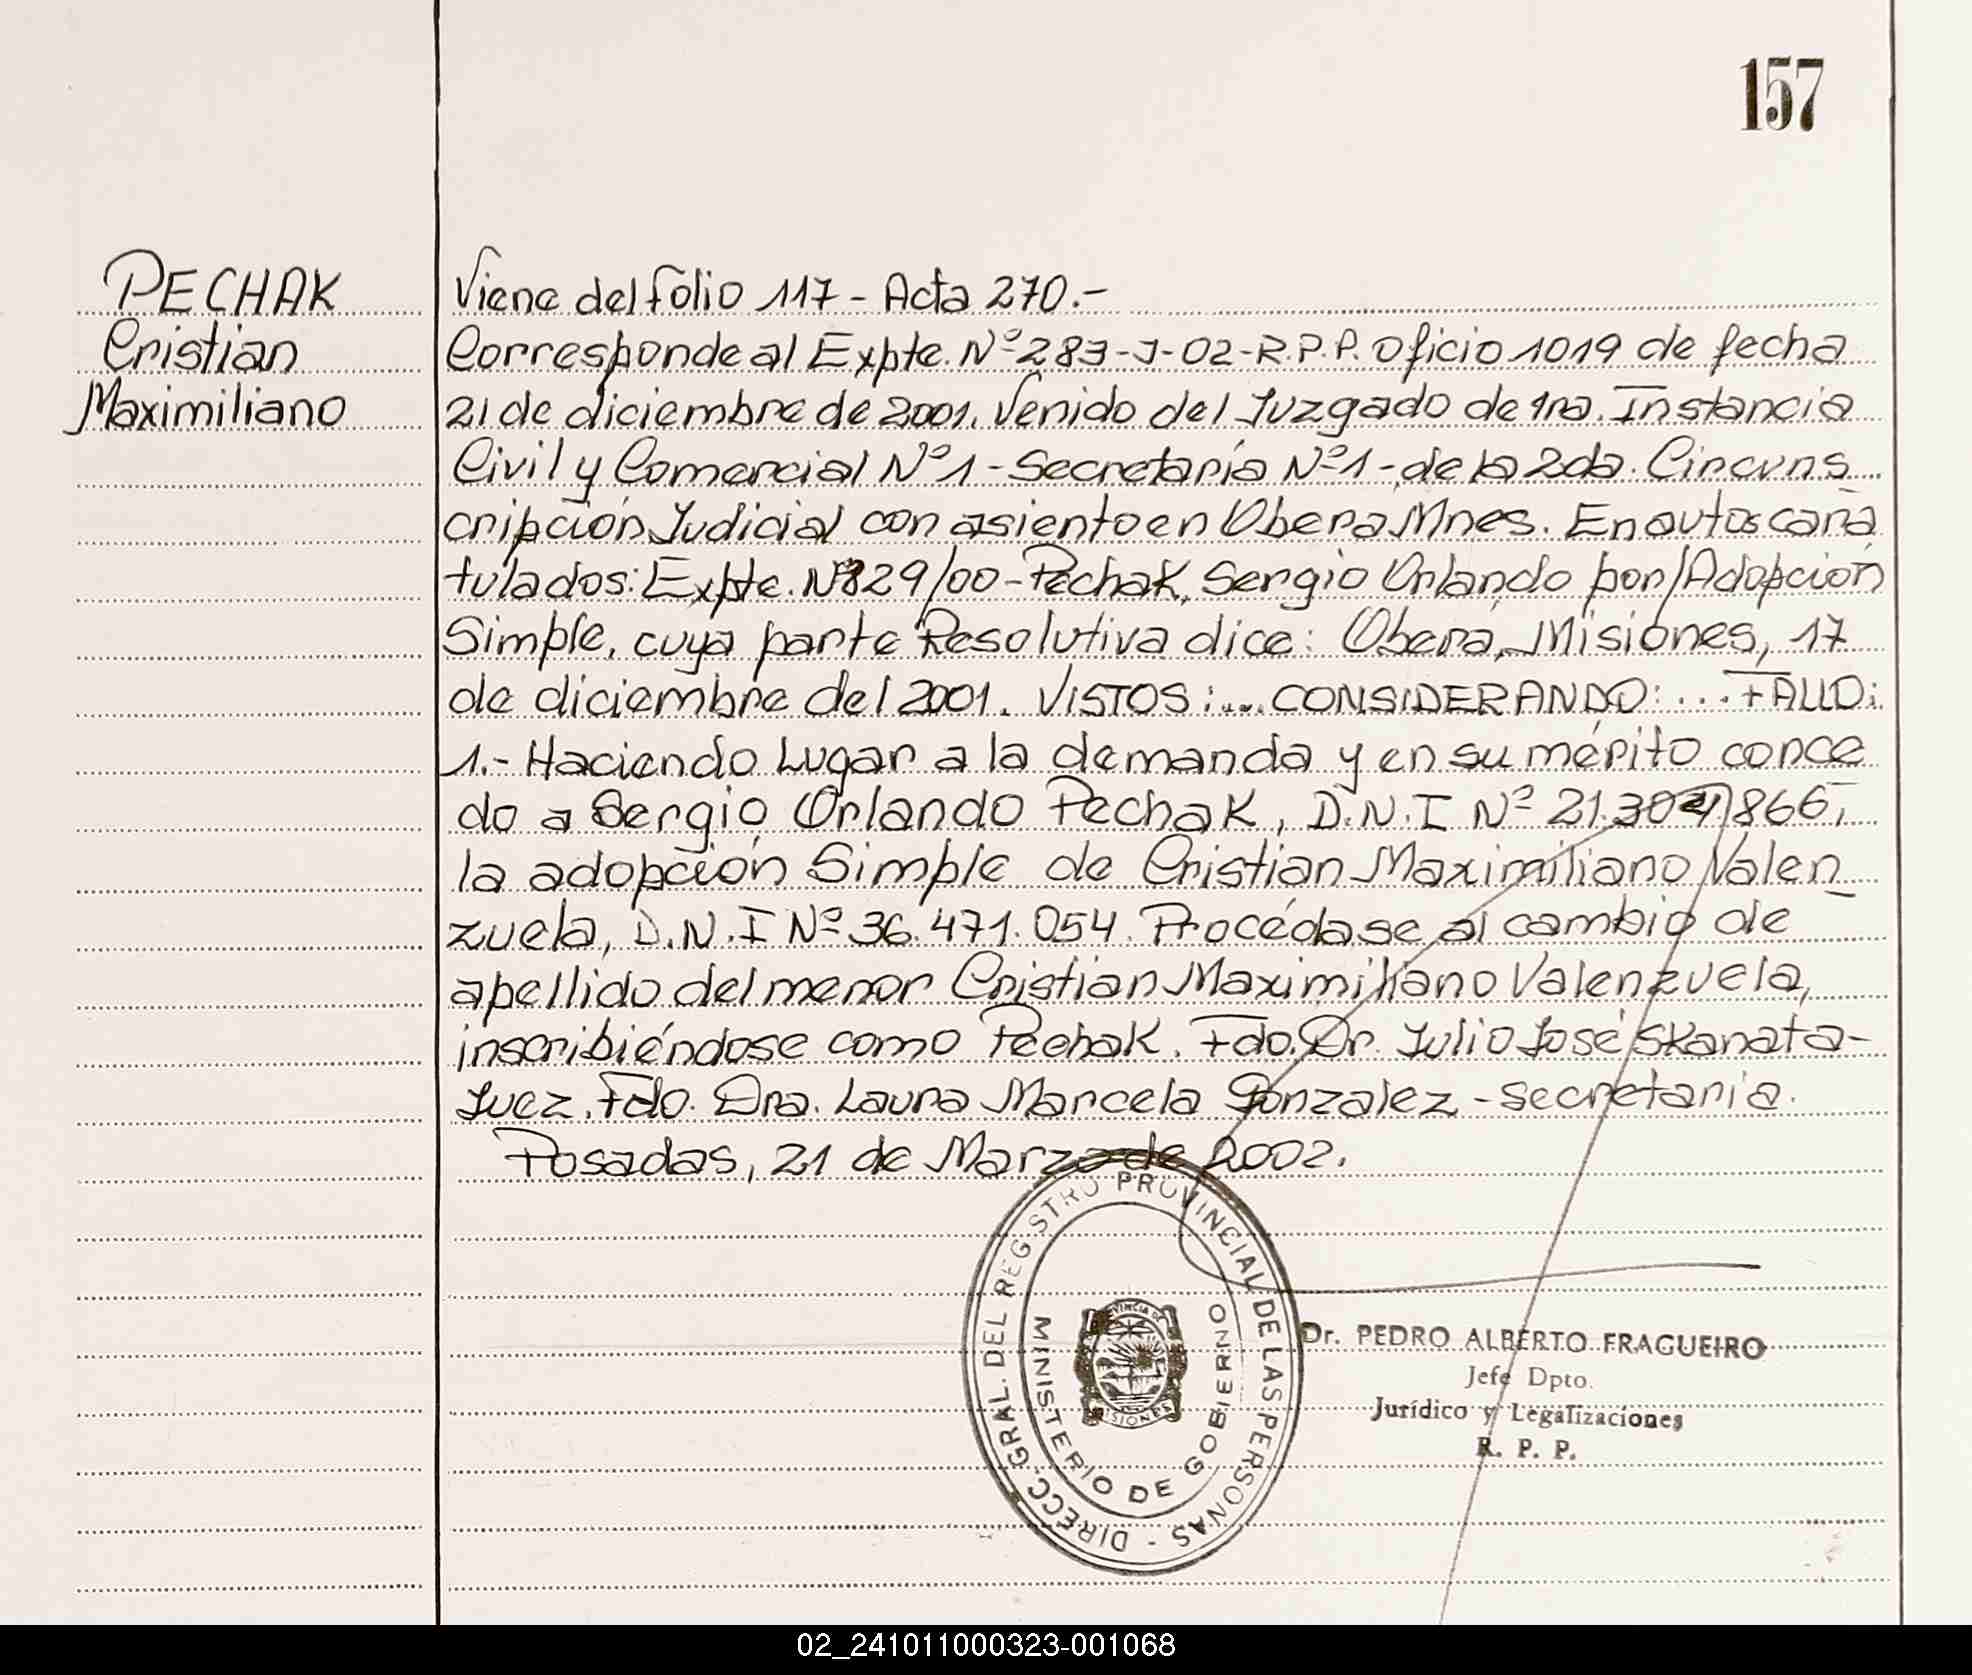 157
PECHAK
Cristian
Maximiliano
Viene del folio 117 - Acta 270.-
Corresponde al Expte. Nº 283-J-02-R.P.P. oficio 1019 de fecha
21 de diciembre de 2001. Venido del Juzgado de 1ra. Instancia
Civil y Comercial Nº 1 - Secretaría Nº 1 - de la 2da. Circuns
cripción Judicial con asiento en Obera Mnes. En autos cará
tulados: Expte. Nº 829/00 - Pechak, Sergio Orlando por/Adopción
Simple, cuya parte Resolutiva dice: Obera, Misiones, 17
de diciembre del 2001. VISTOS:.... CONSIDERANDO:... FALLO:
1.- Haciendo Lugar a la demanda y en su mérito conce
do a Sergio Orlando Pechak, D.N.I Nº 21.304.866,
la adopción Simple de Cristian Maximiliano Valen_
zuela, D.N.I Nº 36.471.054. Procédase al cambio de
apellido del menor Cristian Maximiliano Valenzuela,
inscribiéndose como Pechak. Fdo. Dr. Julio José Skanata-
Juez. Fdo. Dra. Laura Marcela Gonzalez - secretaria.
Posadas, 21 de Marzo de 2002.
DIRECC. GRAL. DEL REGISTRO PROVINCIAL DE LAS PERSONAS -
MINISTERIO DE GOBIERNO
PROVINCIA DE
MISIONES
Dr. PEDRO ALBERTO FRAGUEIRO
Jefe Dpto.
Jurídico y Legalizaciones
R. P. P.
02_241011000323-001068